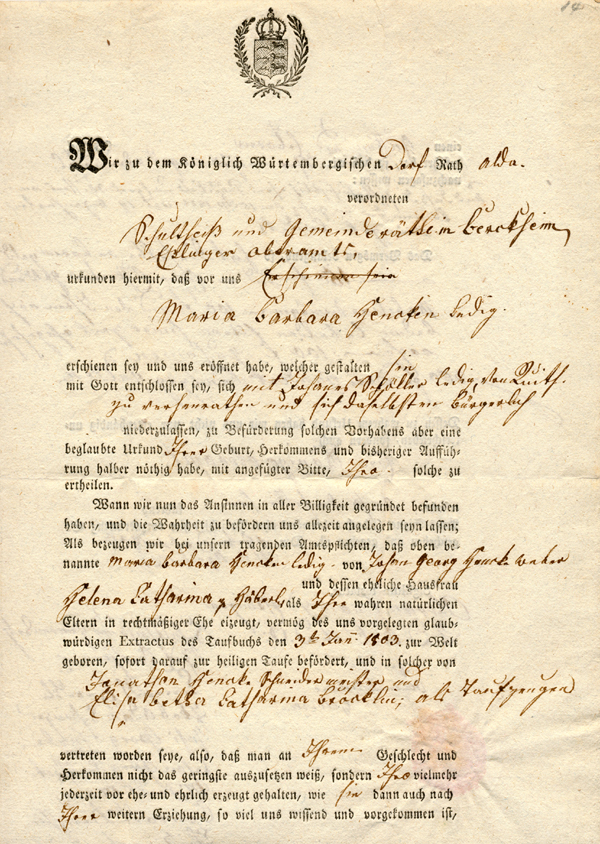 14
Wir zu dem Königlich Würtembergischen Dorf Rath alda.
verordneten
Schultheiß und Gemeinderäth im Berckheim
Eßlinger oberamts,
urkunden hiermit, daß vor uns Erschienen sein
Maria Barbara Hencken Ledig.
erschienen sey und uns eröffnet habe, welcher gestalten sie
mit Gott entschlossen sey, sich mit Johanes Schüller ledig von Ruith.
zu verheurathen und sich daselbsten Bürgerlich
niederzulassen, zu Beförderung solchen Vorhabens aber eine
beglaubte Urkund Ihrer Geburt, Herkommens und bisheriger Auffüh-
rung halber nöthig habe, mit angefügter Bitte, Ihro solche zu
ertheilen.
Wann wir nun das Ansinnen in aller Billigkeit gegründet befunden
haben, und die Wahrheit zu befördern uns allezeit angelegen seyn lassen;
Als bezeugen wir bei unsern tragenden Amtspflichten, daß oben be-
nannte Maria Barbara Hencken ledig von Johan Georg Hencke weber
und dessen eheliche Hausfrau
Helena Catharina Häberl, als Ihre wahren natürlichen
Eltern in rechtmäßiger Ehe elzeugt, vermög des uns vorgelegten glaub-
würdigen Extractus des Taufbuchs den 3t Jan. 1803. zur Welt
geboren, sofort darauf zur heiligen Taufe befördert, und in solcher von
Jonathan Hencke Schneider meister und
Elisabetha Catharina Böcklin, als Taufzeugen
vertreten worden seye, also, daß man an Ihrem Geschlecht und
Herkommen nicht das geringste auszusetzen weiß, sondern Ihro vielmehr
jederzeit vor ehe- und ehrlich erzeugt gehalten, wie sie dann auch nach
Ihrer weitern Erziehung, so viel uns wissend und vorgekommen ist,